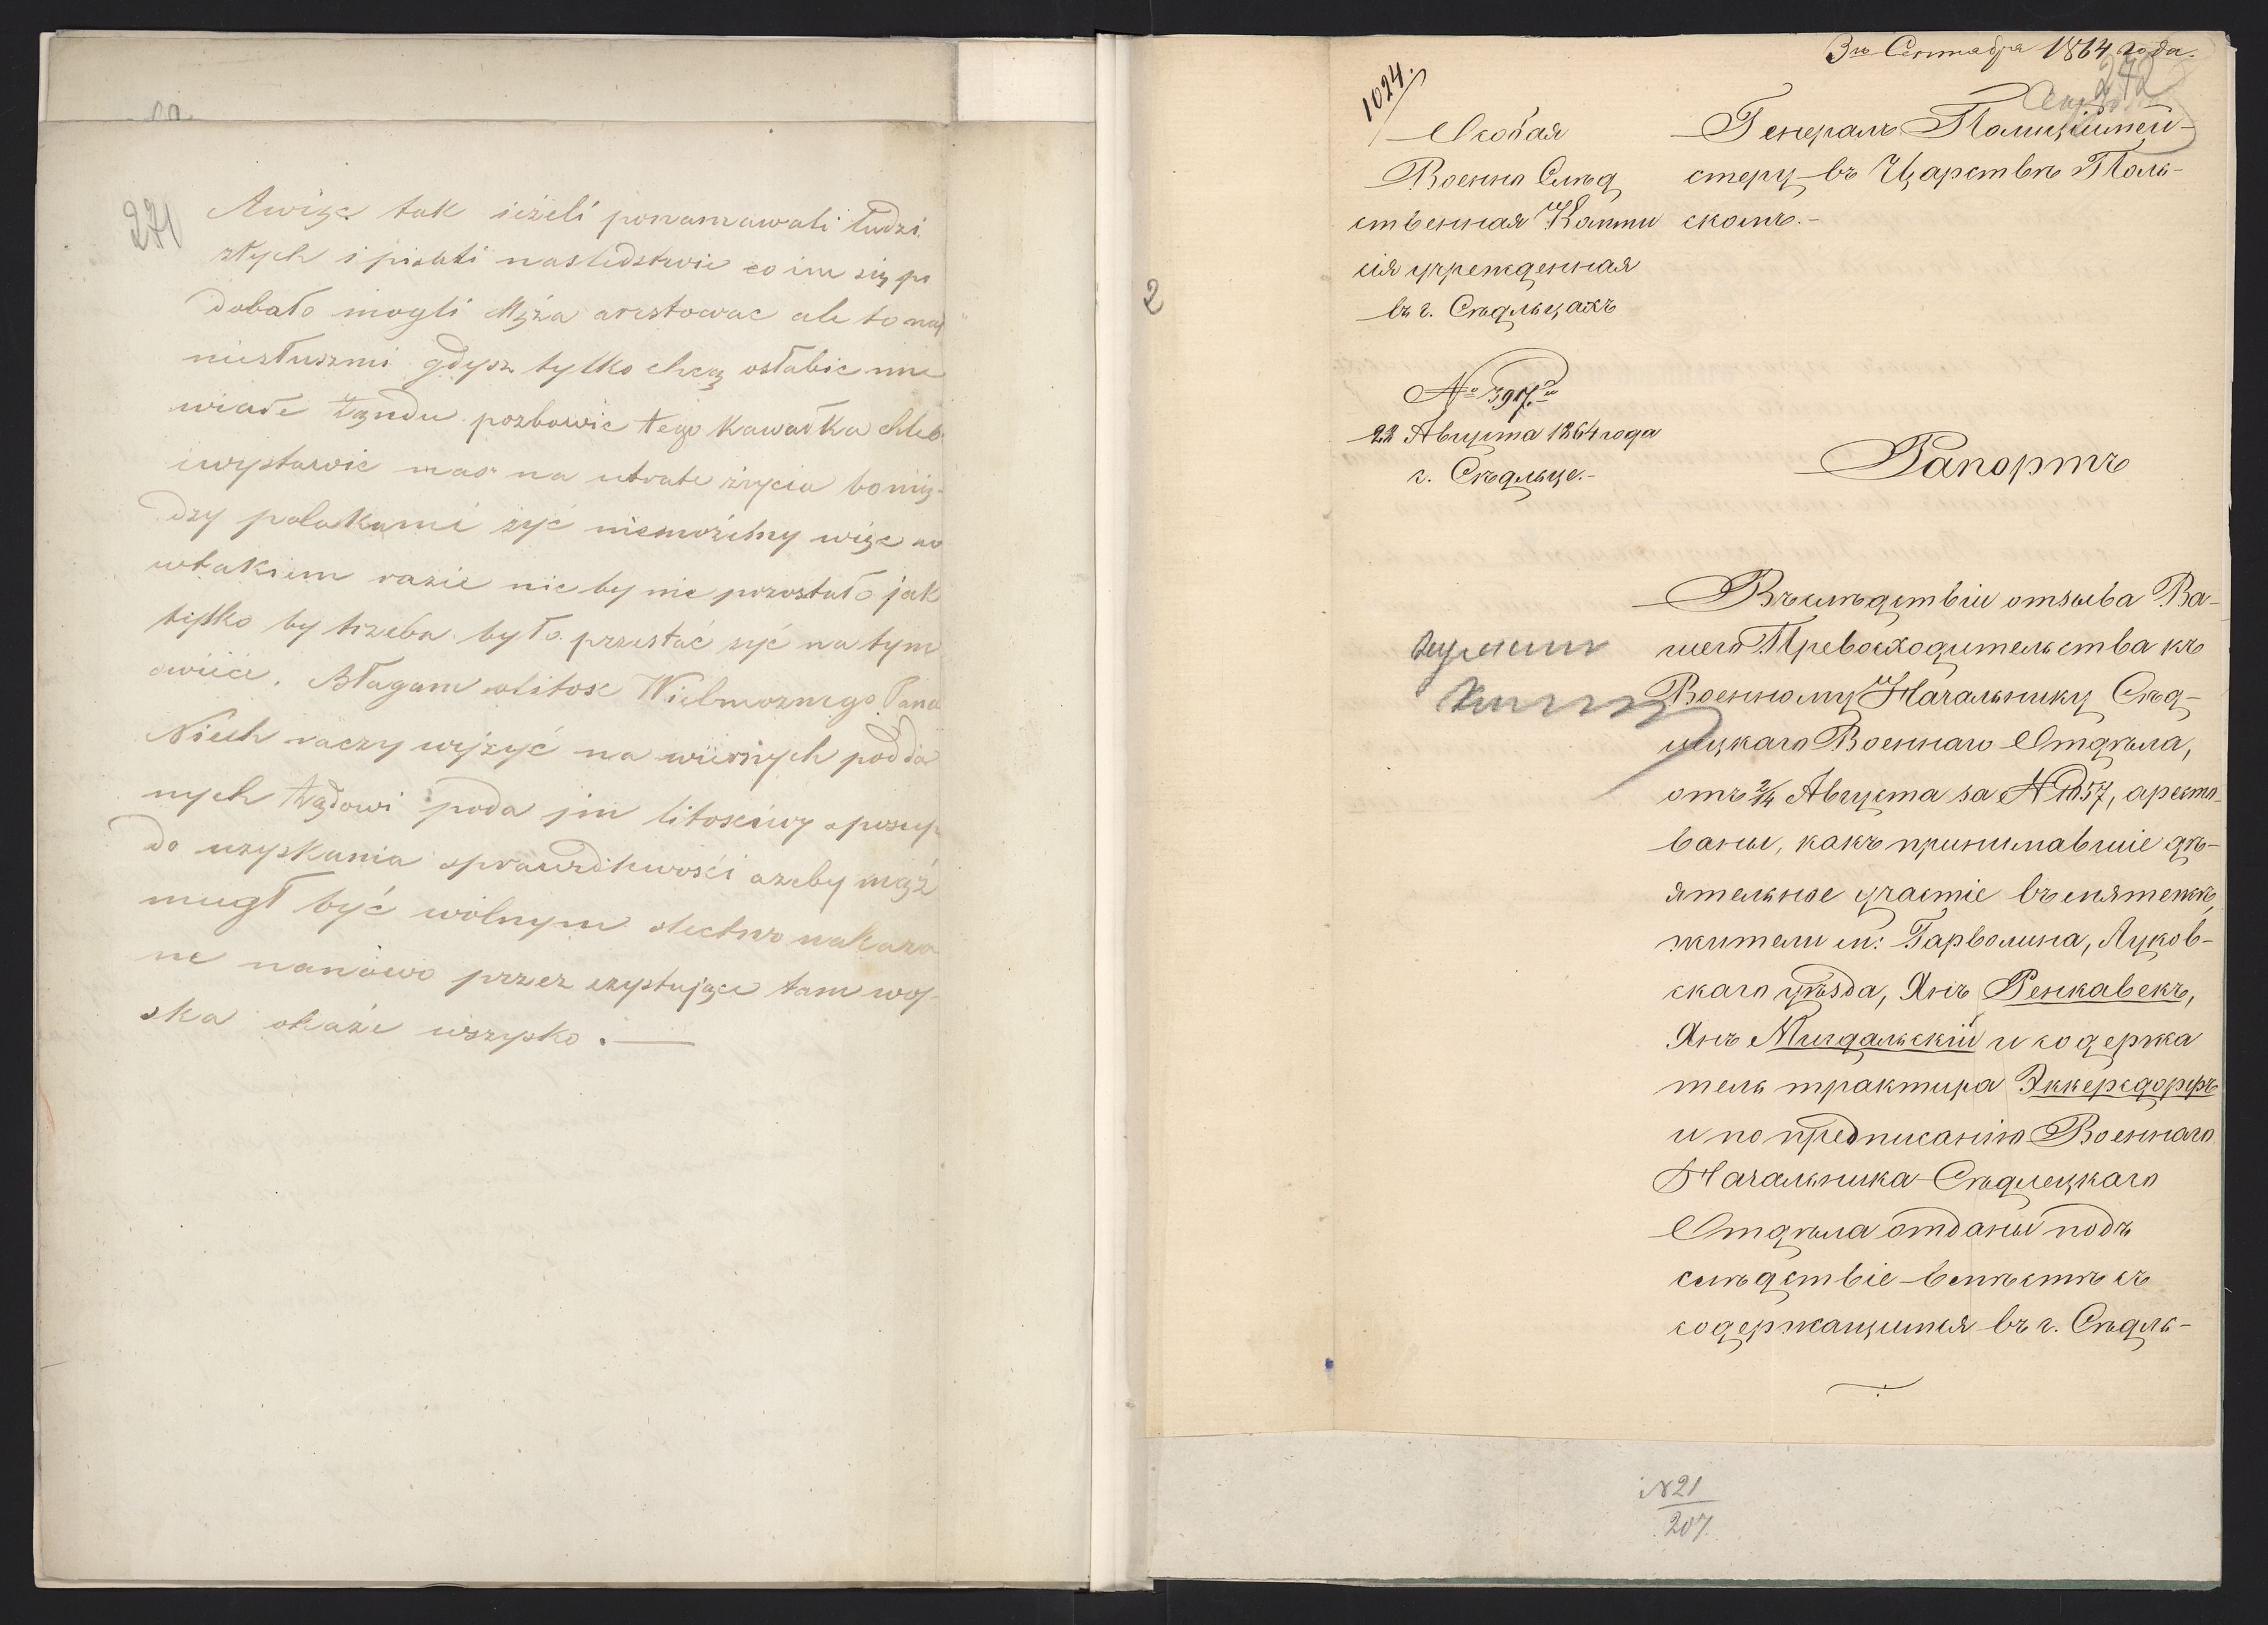 271
Awięc tak jeżeli ponamawali ludzi
złych i pisali nasledstwie co im się po
dobało mogli Męża arestowac ale to naj
niesłuszni gdysz tylko chcą osłabic mi
wiare Rządu pozbowic tego kawałka chleb
iwystawic nas na utrate życia bo mię-
dzy polakami żyć niemożemy więc
wtakiem razie nic by nie pozostało jak
tylko by trzeba było przestać żyć na tym
swiecie. Błagam olitosc Wielmoznego Pana
Niech raczy wejżyć na wiernych podda
nych Rządowi poda jm litosciwy sposup
do uzyskania sprawedliwości azeby mąż
mugł być wolnym sledztwo nakaza
ne nanowo przez ezystujące tam woj-
ska okaże wszysko. —
2
3го Сентября 1864 года.
242
1024.
Особая
Военно Слѣд
ственная Комми
сія учрежденная
въ г. Сѣдльцахъ
№ 3917.
22 Августа 1864 года
г. Сѣдльце.-
Генералъ Полиціймей-
стеру въ Царствѣ Поль-
скомъ.-
Рапортъ
Вслѣдствіи отзыва Ва-
шего Превосходительства къ
Военному Начальнику Сѣд-
лецкаго Военнаго Отдѣла,
отъ 2/14 Августа за № 1057, аресто-
ваны, какъ принимавшіе дѣ-
ятельное участіе въ мятежѣ,
жители м: Гарволина, Луков-
скаго уѣзда, Янъ Ренкавекъ,
Янъ Мигдальскій и содержа
тель трактира Эккерсдорфъ
и по предписанію Военнаго
Начальника Сѣдлецкаго
Отдѣла отданы подъ
слѣдствіе вмѣстѣ съ
содержащимся въ г. Сѣдль-
№21
207.